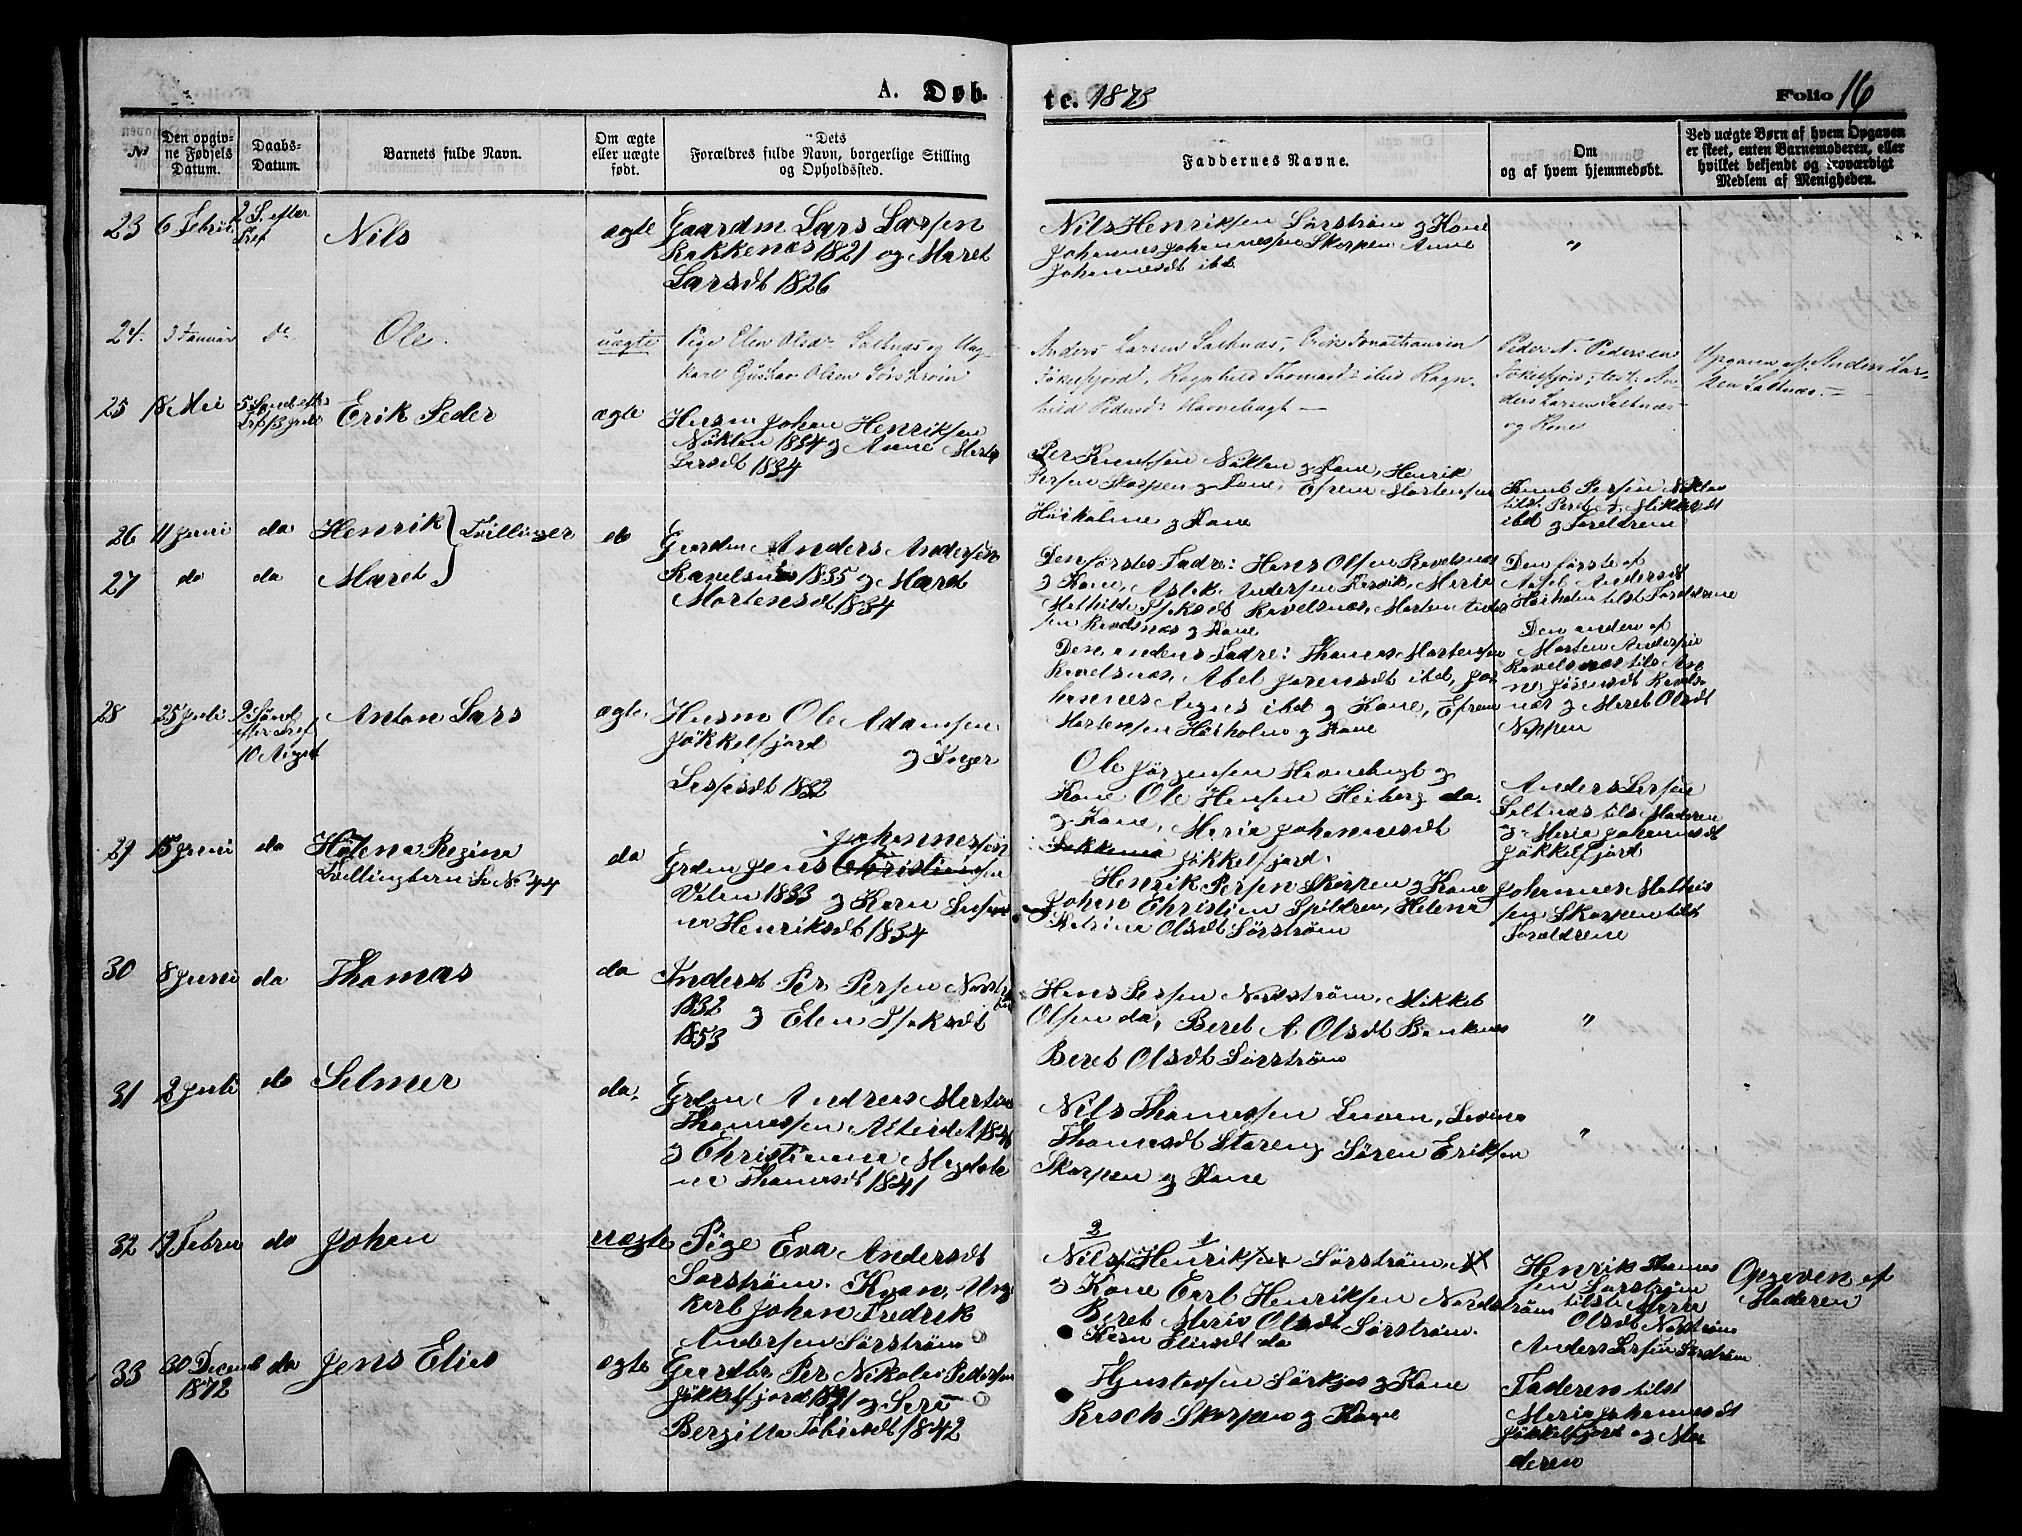 A. Døb-
te. 1873
Folio 16
No
Den opgiv-
ne Fødsels
Datum.
Daabs-
Datum.
Barnets fulde Navn.
Om ægte
eller uægte
født.
Dets
Forældres fulde Navn, borgerlige Stilling
og Opholdssted.
Faddernes Navne.
Om
og af hvem hjemmedøbt.
Ved uægte Børn af hvem Opgaven
er skeet, enten Barnemoderen, eller
hvilket bekjendt og troværdigt
Medlem af Menigheden.
23
6 Febru
2 S. efter
Tref
Nils
ægte
Gaardm Lars Larsen
Rakkenæs 1821 og Maret
Larsdt 1826
Nils Henriksen Sørstrøm og Kone
Johannes Johannessen Skorpen Anne
Johannesdt ibd
"
24.
3 Januar
do
Ole
uægte
Pige Elen Olsdr Saltnæs og Ung-
karl Gustav Olsen Sørstrøm
Anders Larsen Saltnæs, Erik Jonathansen
Jøkelfjord, Ragnhild Thomasd ibid Ragn-
hild Pedersd Havnebugt
Peder N. Pedersen
Jøkelfjord; test; An-
ders Larsen Saltnæs
og Kone
Opgaven af Anders Lar-
sen Saltnæs.
25
18 Mai
5 Sønd eft
Erik Peder
ægte
Husm Johan Henriksen
Nøklen 1834 og Anne Marta
Larsdt 1834
Per Knutsen Nøklen og Kone, Henrik
Persen Skorpen og Kone, Efrem Mortensen
Høiholme og Kone
Knut Persen Nøklen
tilst Beret Mikkelsdt
ibd og Foreldrene
26
11 Juni
do
Henrik } Tvillinger
do
Gardm Anders Andersen
Ravelsnæs 1835 og Maret
Mortensdt 1834
27
do
do
Maret
Den førstes Fadre: Hans Olsen Ravelsnæs
og Kone, Aslak Andersen Kjosvik, Maria
Mathilde Isaksdt Ravelsnæs, Morten Ander
sen Ravelsnæs og Kone
Den andens Fadre: Thomas Mortensen
Ravelsnæs, Abel Jørensdt ibd, Jo-
hannes Agnus ibd og Kone, Efrem
Mortensen Høiholm og Kone
Den første af
Abel Andersdt
Høiholm tilst Foreldrene
Den anden af
Morten Andersen
Ravelsnæs tilst An
ne Jørensdt Ravels-
næs og Maret Olsdt
Neppen
28
25 Juli
9 Sønd
efter Tref
10 August
Anton Lars
ægte
Husm Ole Adamsen
Jøkkelfjord og Inger
Larsdt 1832
Ole Jørgensen Havnebugt og
Kone Ole Hansen Heiberg do.
og Kone, Maria Johannesdt
Jøkkelfjord.
Anders Larsen
Saltnæs tilst Moderen
og Maria Johannesdt
Jøkkelfjord
29
15 Juni
do
Helena Regina
Tvillingbarn Se No 44
do
Johannessen
Grdm Jens Christiansen
Valen 1833 og Karn
Henriksdt 1834
Henrik Persen Skorpen og Kone
Johan Christian Spildren, Helena
Katrine Olsdt Sørstrøm
Johannes Mathis
sen Skorpen tilst
Foreldrene
30
8 Juni
do
Thomas
do
Inderst Per Persen Nordstrøm
1832 og Elen Isaksdt
1853
Hans Persen Nordstrøm, Mikkel
Olsen do, Beret A Olsdt Bankenes
Beret Olsdt Sørstrøm
"
31
2 Juli
do
Selmer
do.
Grdm Andreas Martin
Thomassen Alteidet 1841
og Christianna Magdale
na Thomasdt 1841
Nils Thomassen Leuven, Levina
Thomasdt Storeng Søren Eriksen
Skorpen og Kone
"
32
19 Febru
do
Johan
uægte
Pige Eva Andersdt
Sørstrøm. Kvæn. Ung
karl Johan Fredrik
Andersen Sørstrøm
Nils Henriksen Sørstrøm
og Kone Carl Henriksen Nordstrøm
Beret Maria Olsdt Sørstrøm.
Karn Eliasdt do
Henrik Thomas
sen Sørstrøm
tilst Maria
Olsdt Nordstrøm
Anders Larsen Sørstrøm
Opgiven af
Moderen
33
30 Decemb
1872
do
Jens Elias
ægte
Gaardbr Per Nikolai Pedersen
Jøkkelfjord 1841 og Sara
Bergitta Tobiasdt 1842
Hj Gustavsen Sørkjos og Kone
Resch Skorpen og Kone
Faderen tilst
Maria Johannesdt
Jøkkelfjord og Mo-
deren